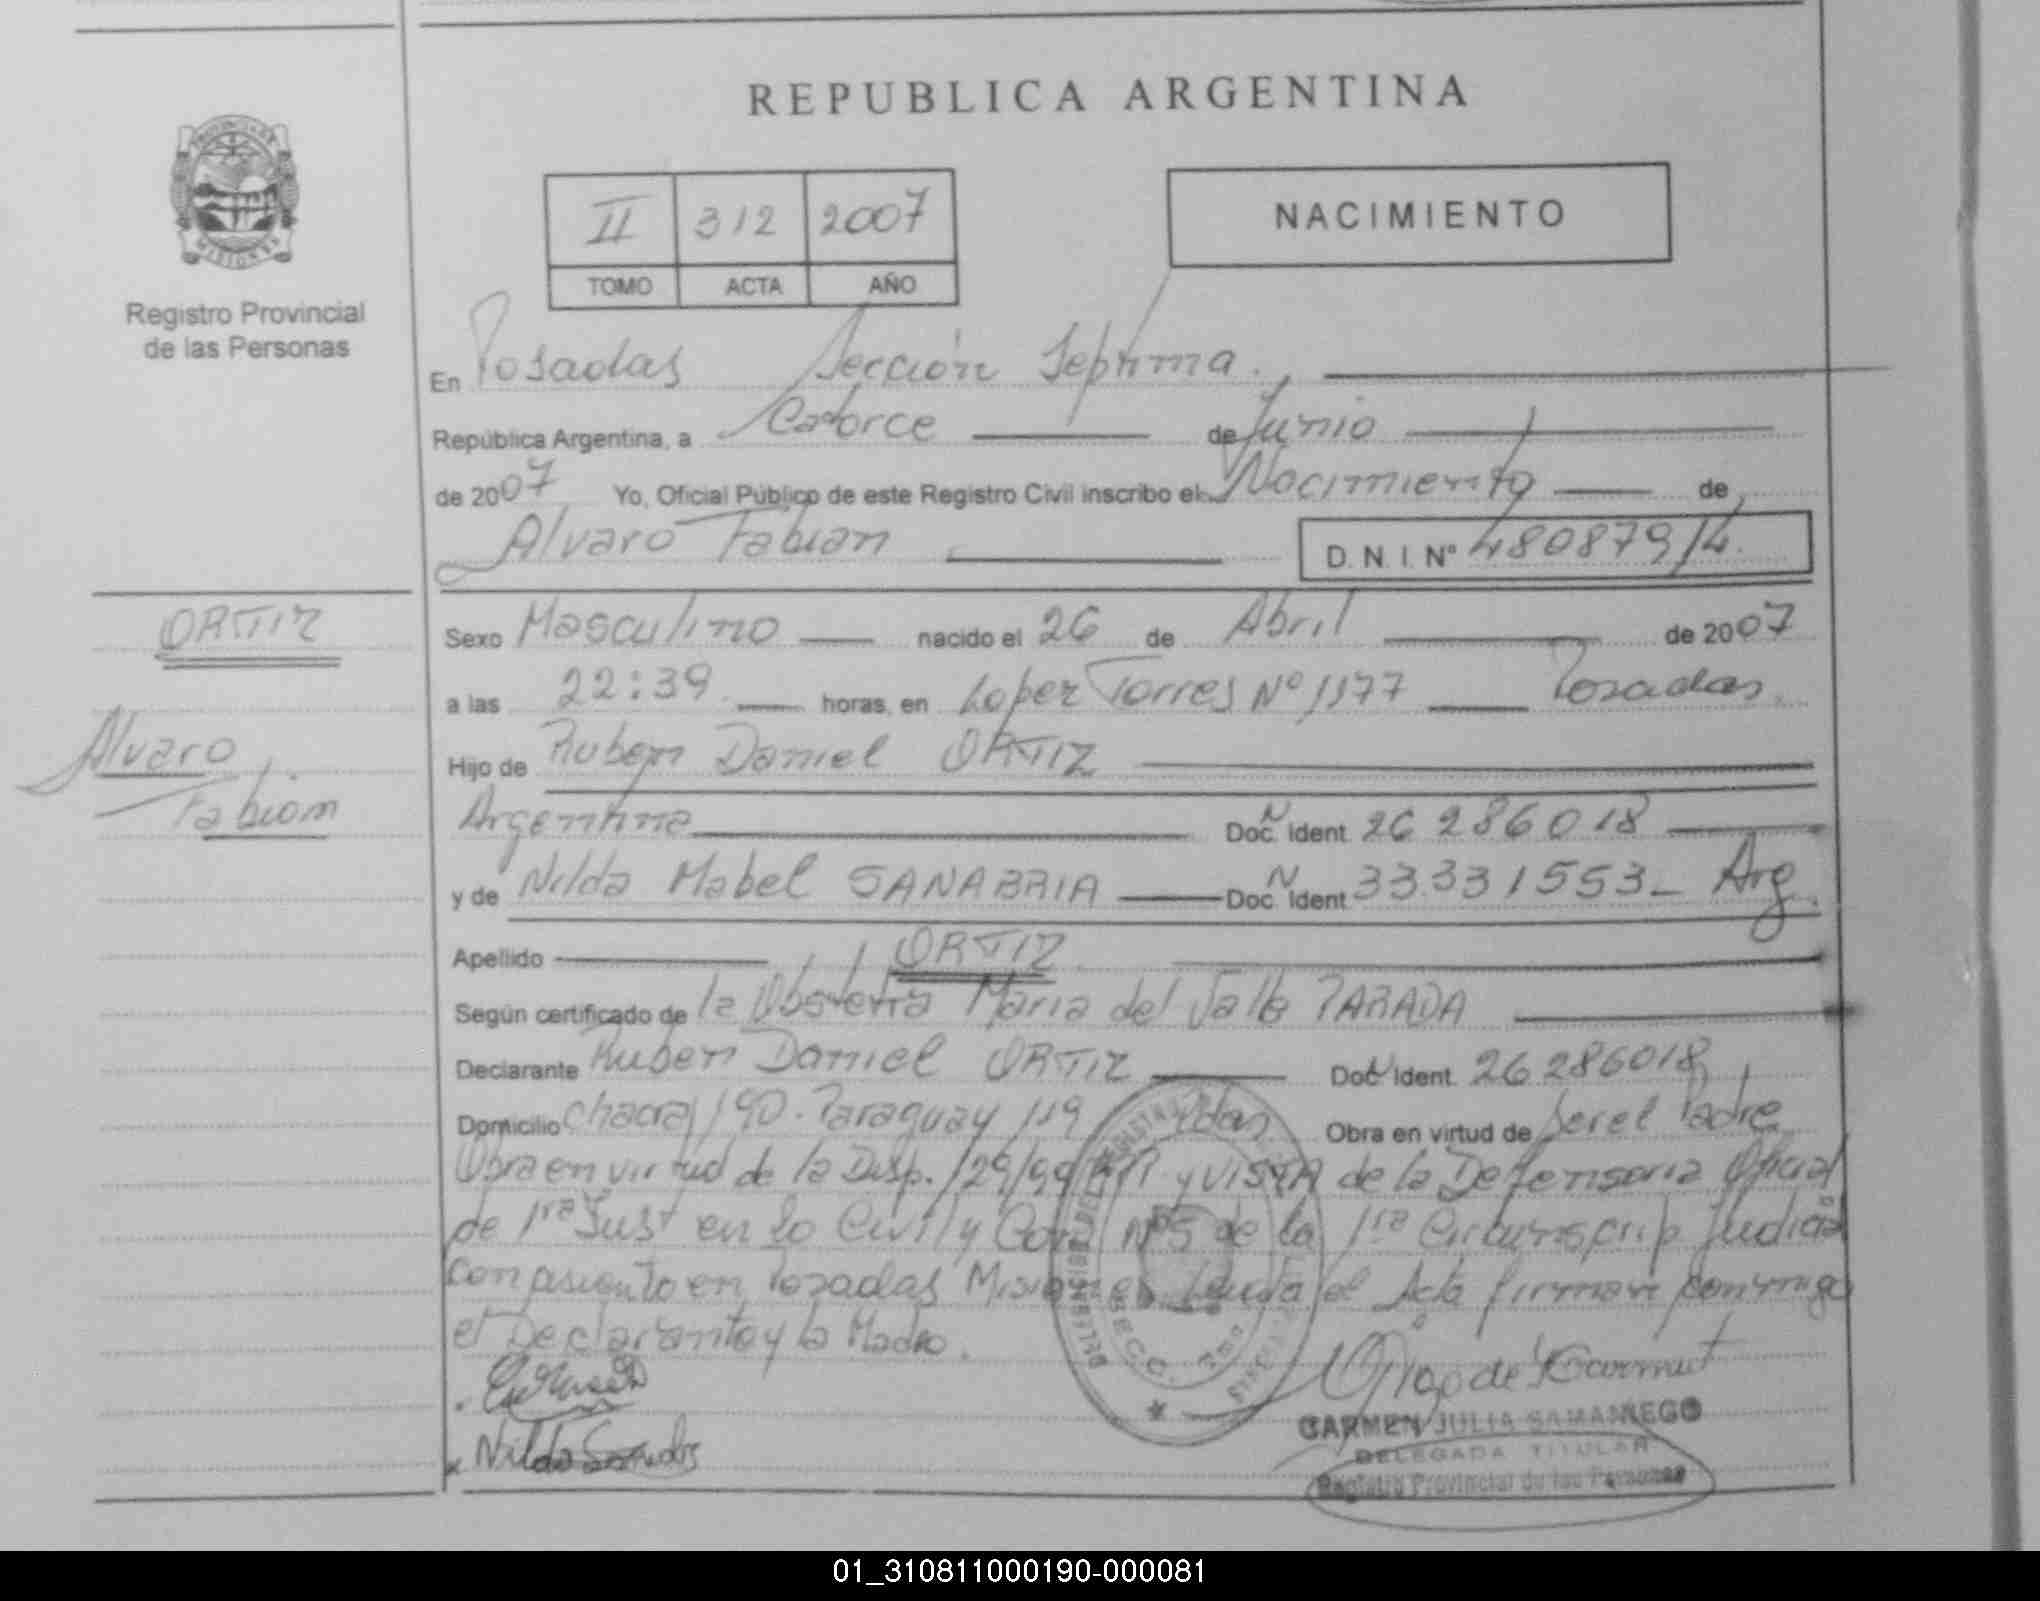 REPUBLICA ARGENTINA
PROVINCIA DE
MISIONES
Registro Provincial
de las Personas
II 312 2007
TOMO ACTA AÑO
NACIMIENTO
En Posadas Sección Septima.
República Argentina, a Catorce de Junio
de 2007 Yo, Oficial Público de este Registro Civil inscribo el Nacimiento de
Alvaro Fabian D. N. I. Nº 48087914
ORTIZ
Alvaro
Fabian
Sexo Masculino nacido el 26 de Abril de 2007
a las 22:39 horas, en Lopez Torres Nº 1177 Posadas.
Hijo de Ruben Daniel ORTIZ
Argentina Doc. N Ident. 26 286018
y de Nilda Mabel SANABRIA Doc. N Ident. 33331553 Arg
Apellido ORTIZ
Según certificado de la Obstetra Maria del Valle PARADA
Declarante Ruben Daniel ORTIZ Doc N Ident. 26 286018
Domicilio chacra 190. Paraguay 119 Pdas. Obra en virtud de ser el Padre
Obra en virtud de la Disp. 129/99 y VISTA de la Defensoria Oficial
de 1ra Inst en lo Civil y Nº5 de la 1ra Circunscrip Judicial
con asiento en Posadas Misiones Leida el Acta firman conmigo
el Declarante y la Madre.
Nilda
CARMEN JULIA SAMANIEGO
DELEGADA TITULAR
Registro Provincial de las Personas
01_310811000190-000081